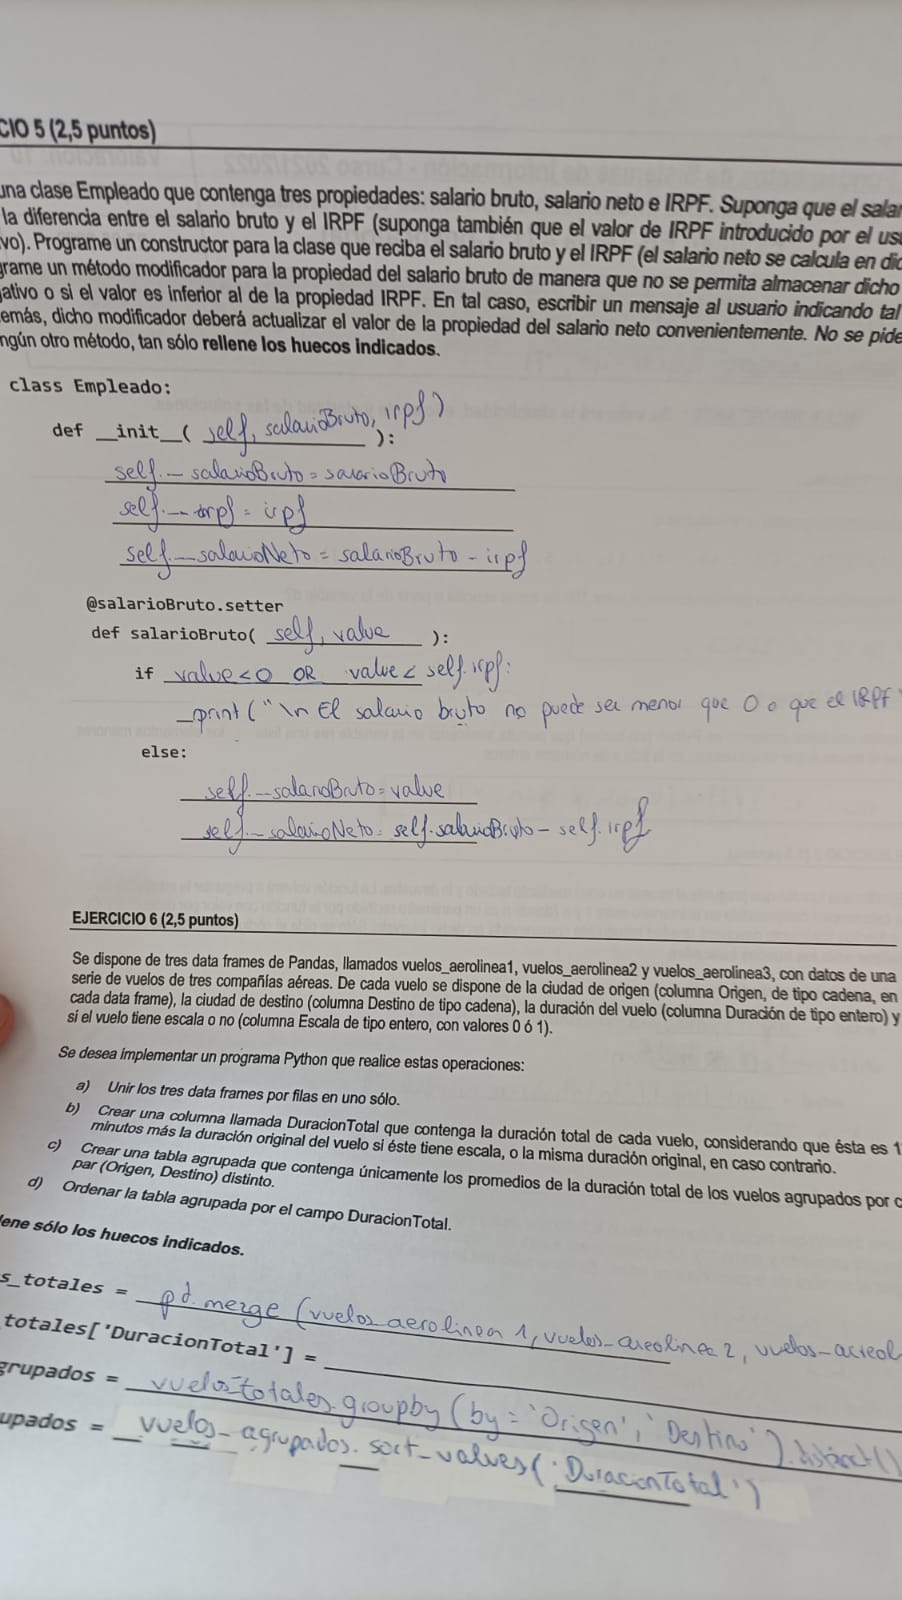 CIO 5 (2,5 puntos)
una clase Empleado que contenga tres propiedades: salario bruto, salario neto e IRPF. Suponga que el salar
la diferencia entre el salario bruto y el IRPF (suponga también que el valor de IRPF introducido por el usu
vo). Programe un constructor para la clase que reciba el salario bruto y el IRPF (el salario neto se calcula en dic
grame un método modificador para la propiedad del salario bruto de manera que no se permita almacenar dicho
gativo o si el valor es inferior al de la propiedad IRPF. En tal caso, escribir un mensaje al usuario indicando tal
emás, dicho modificador deberá actualizar el valor de la propiedad del salario neto convenientemente. No se pide
ngún otro método, tan sólo rellene los huecos indicados.
class Empleado:
def __init__( self, salarioBruto, irpf) ):
self.__salarioBruto = salarioBruto
self.__irpf = irpf
self.__salarioNeto = salarioBruto - irpf
@salarioBruto.setter
def salarioBruto( self, value ):
if value < 0 OR value < self.irpf:
print("\n El salario bruto no puede ser menor que 0 o que el IRPF"
else:
self.__salarioBruto = value
self.__salarioNeto = self.salarioBruto - self.irpf
EJERCICIO 6 (2,5 puntos)
Se dispone de tres data frames de Pandas, llamados vuelos_aerolinea1, vuelos_aerolinea2 y vuelos_aerolinea3, con datos de una
serie de vuelos de tres compañías aéreas. De cada vuelo se dispone de la ciudad de origen (columna Origen, de tipo cadena, en
cada data frame), la ciudad de destino (columna Destino de tipo cadena), la duración del vuelo (columna Duración de tipo entero) y
si el vuelo tiene escala o no (columna Escala de tipo entero, con valores 0 ó 1).
Se desea implementar un programa Python que realice estas operaciones:
a) Unir los tres data frames por filas en uno sólo.
b) Crear una columna llamada DuracionTotal que contenga la duración total de cada vuelo, considerando que ésta es 1
minutos más la duración original del vuelo si éste tiene escala, o la misma duración original, en caso contrario.
c) Crear una tabla agrupada que contenga únicamente los promedios de la duración total de los vuelos agrupados por c
par (Origen, Destino) distinto.
d) Ordenar la tabla agrupada por el campo DuracionTotal.
lene sólo los huecos indicados.
s_totales = pd.merge (vuelos_aerolinea 1, vuelos_aerolinea 2, vuelos_aereol
totales['DuracionTotal'] =
grupados = vuelos_totales.groupby (by = 'Origen', 'Destino').distinct()
upados = vuelos_agrupados.sort_values('DuracionTotal')